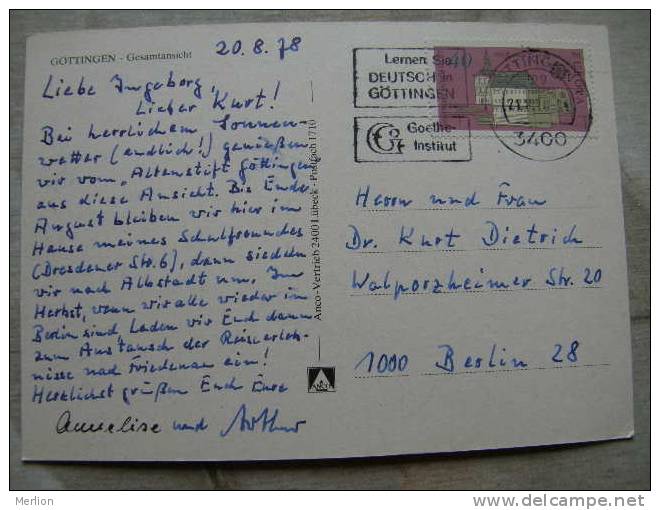 GÖTTINGEN - Gesamtansicht
20.8.78
Liebe Ingeborg,
Lieber Kurt!
Bei herrlichem Sonnen-
wetter (endlich!) genießen
wir vom "Altenstift Göttingen
aus diese Ansicht. Bis Ende
August bleiben wir hier im
Hause meines Schulfreundes
(Dresdener Str. 6), dann siedeln
wir nach Albstadt um. Im
Herbst, wenn wir alle wieder in
Berlin sind, laden wir Euch dann
zum Austausch der Reiseerleb-
nisse nach Friedenau ein!
Herzlichst grüßen Euch Eure
Annelise und Arthur
Anco-Vertrieb 2400 Lübeck - Postfach 1710
Lernen Sie
DEUTSCH in
GÖTTINGEN
Goethe-
Institut
40
GÖTTINGEN
3400
Herrn und Frau
Dr. Kurt Dietrich
Walporzheimer Str. 20
1000 Berlin 28
Merlion
www.delcampe.net